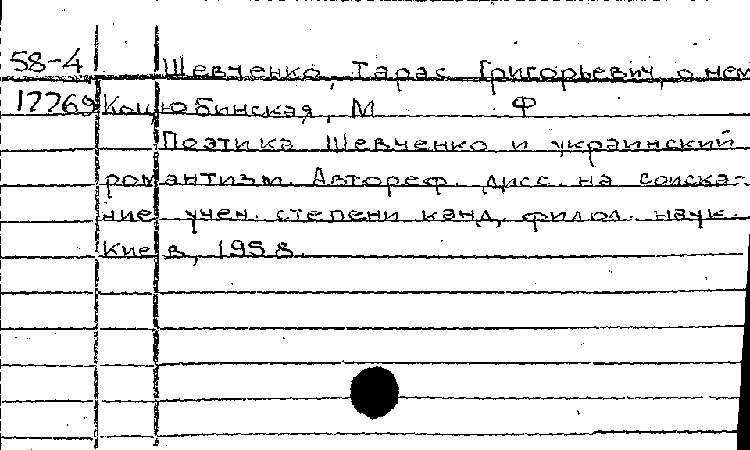 58-4 Шевченко, Тарас Григорьевич, о нем
17769 Коцюбинская, М Ф
Поэтика Шевченко и украинский
романтизм. Автореф. дисс. на соиска-
ние учен. степени канд. филол. наук.
Киев, 1958